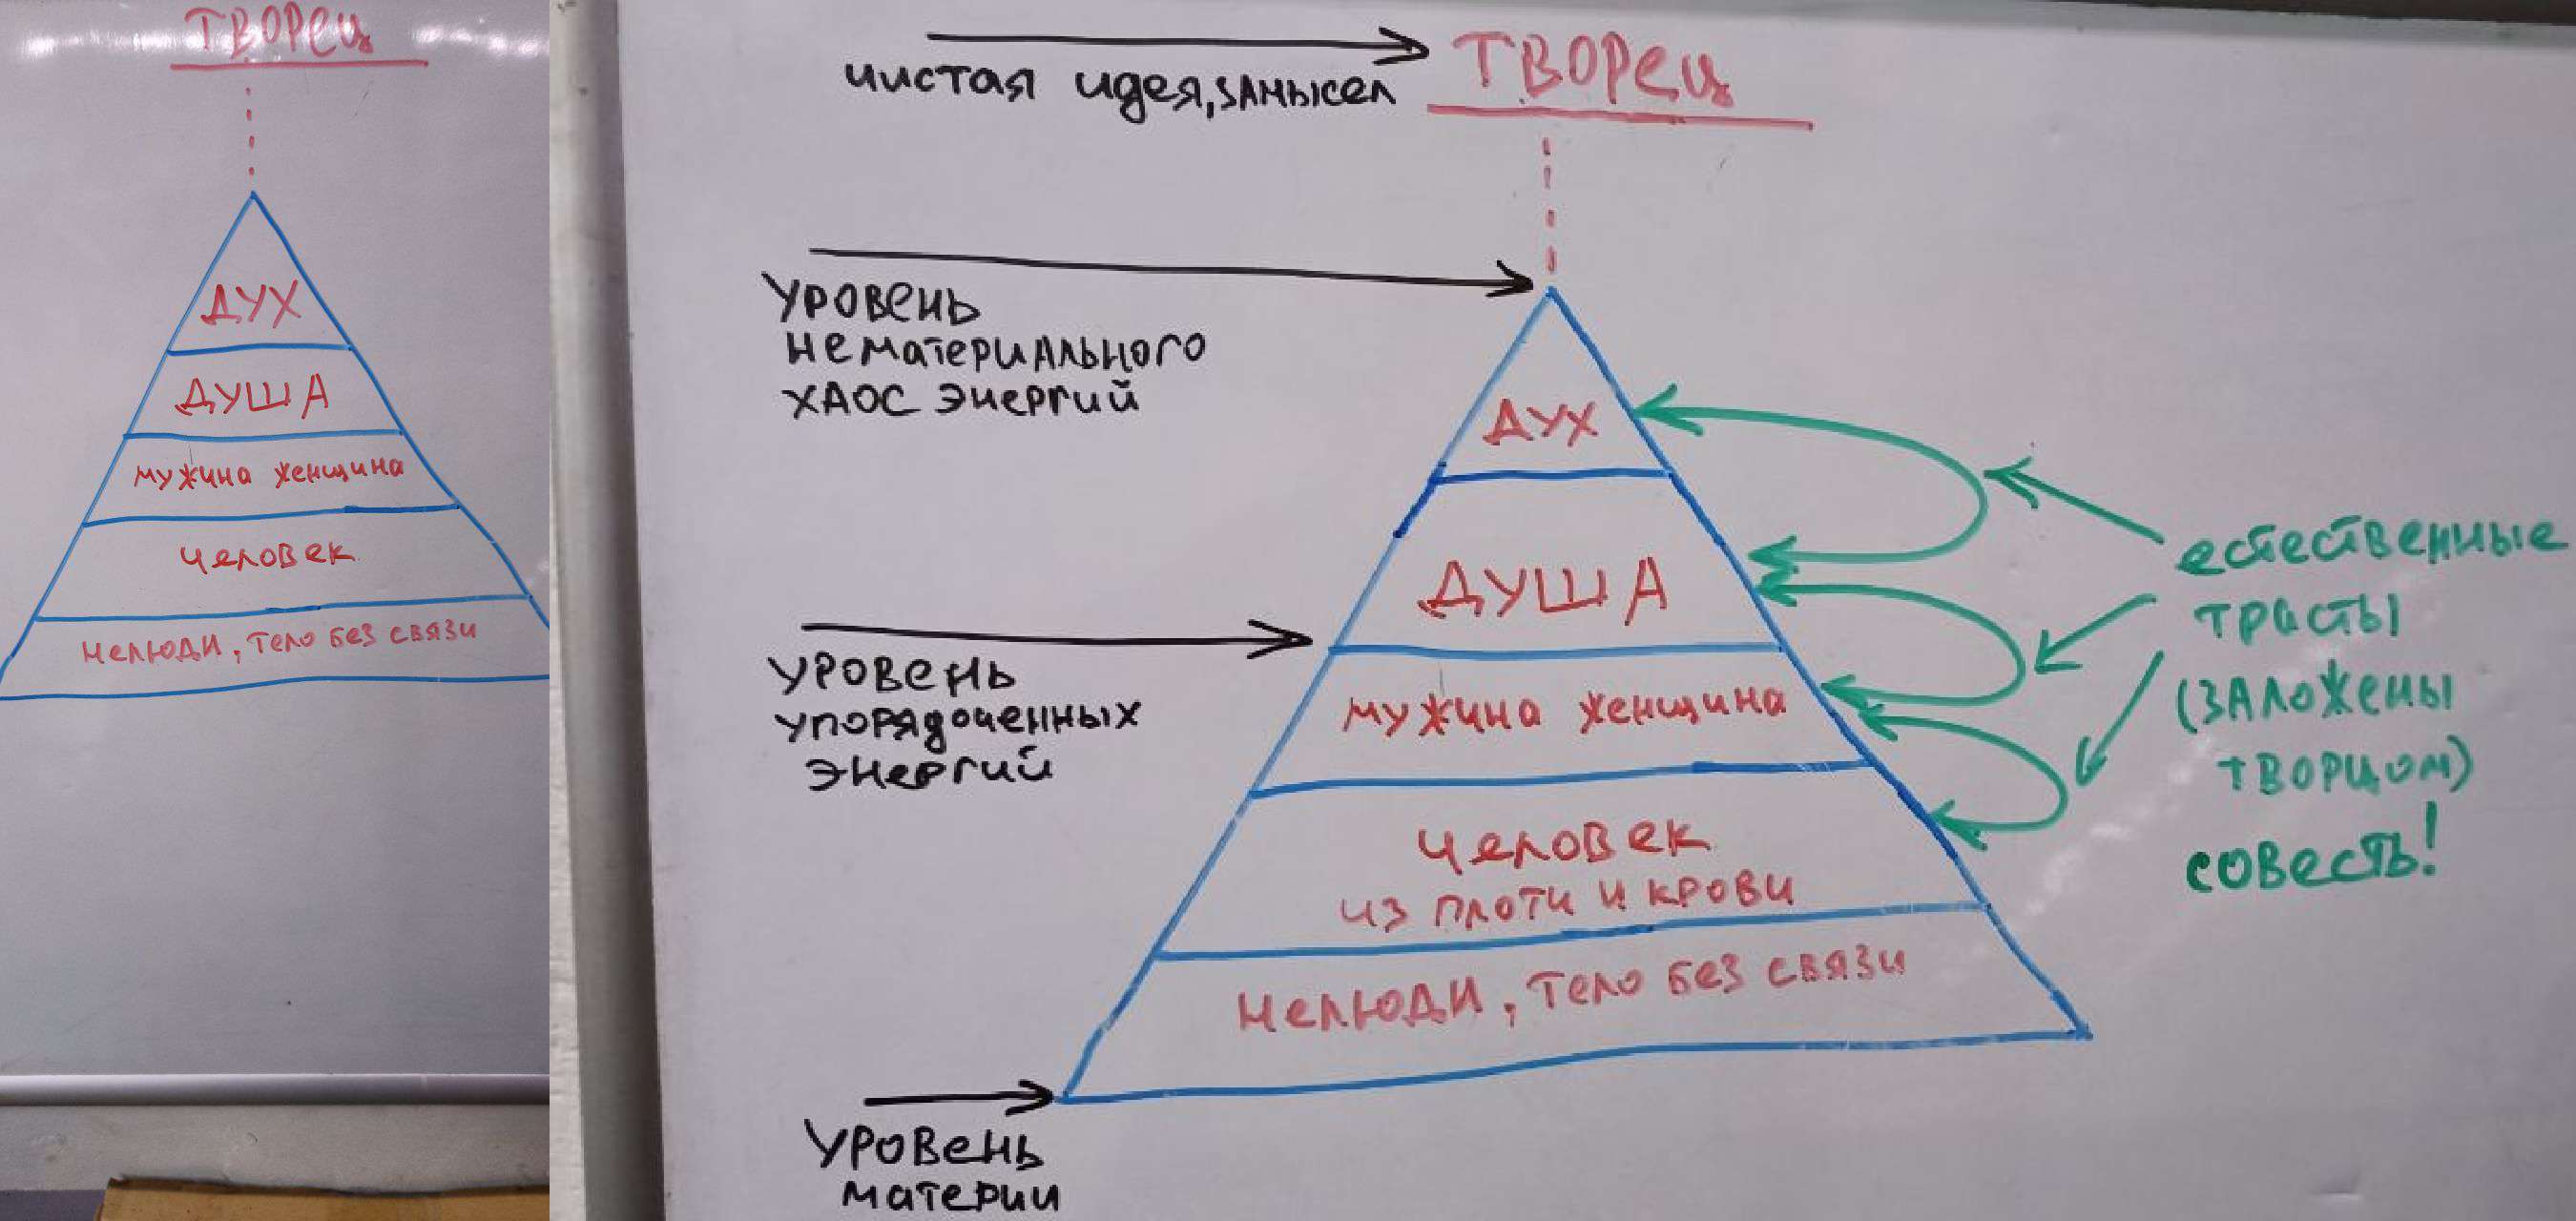 ТВОРЕЦ
ДУХ
ДУША
мужина женщина
человек
нелюди, тело без связи
чистая идея, замысел
ТВОРЕЦ
уровень
нематериального
хаос энергий
ДУХ
ДУША
уровень
упорядоченных
энергий
мужина женщина
человек
из плоти и крови
нелюди, тело без связи
уровень
материи
естественные
трасты
(заложены
творцом)
совесть!